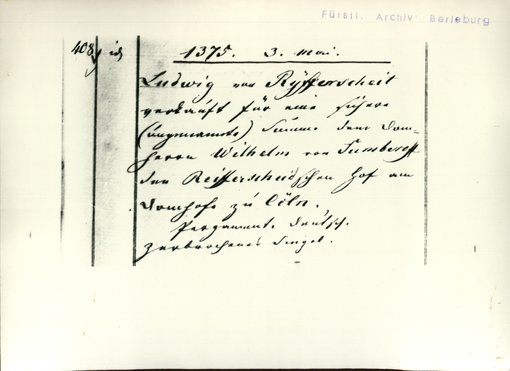 Fürstl. Archiv Berleburg
408
1375. 3. Mai.
Ludwig von Ryfferscheit
verkauft für eine sichere
(ungenannte) Summe dem Dom-
herrn Wilhelm von
den Reifferscheidschen Hof am
Domhofe zu Cöln.
Pergament. Deutsch.
Zerbrochenes Siegel.